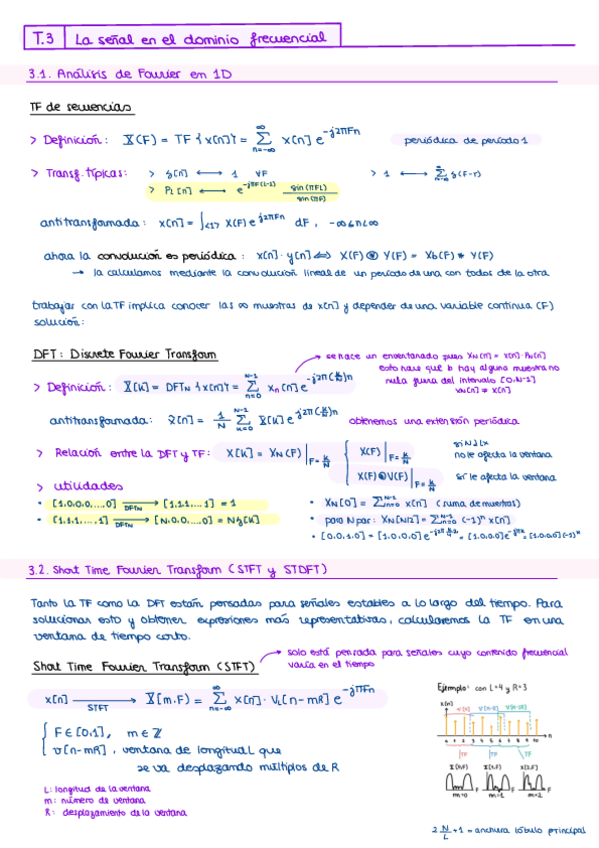 T.3 La señal en el dominio frecuencial
3.1. Análisis de Fourier en 1D
TF de secuencias
> Definición: X(F) = TF{x[n]} = ∑_{n=-∞}^{∞} x[n] e^{-j2πFn} periódica de período 1
> Transf. típicas: > δ[n] ⟷ 1 ∀F > 1 ⟷ ∑ δ(F-r)
> P_L[n] ⟷ e^{-jπF(L-1)} sin(πFL)/sin(πF)
antitransformada: x[n] = ∫_{<1>} X(F) e^{j2πFn} dF, -∞≤n<∞
ahora la convolución es periódica: x[n]·y[n] ⟺ X(F) ⊛ Y(F) = X_b(F) * Y(F)
→ la calculamos mediante la convolución lineal de un período de una con todos de la otra
trabajar con la TF implica conocer las ∞ muestras de x[n] y depender de una variable continua (F)
solución:
DFT: Discrete Fourier Transform
se hace un enventanado pues X_N[n] = x[n]·P_N[n]
esto hace que haya alguna muestra no
nula fuera del intervalo [0,N-1]
x_N[n] ≠ x[n]
> Definición: X[k] = DFT_N{x[n]} = ∑_{n=0}^{N-1} x_n[n] e^{-j2π(k/N)n}
antitransformada: x̃[n] = 1/N ∑_{k=0}^{N-1} X[k] e^{j2π(k/N)n} obtenemos una extensión periódica
> Relación entre la DFT y TF: X[k] = X_N(F)|_{F=k/N} { X(F)|_{F=k/N} si N≥Lx no le afecta la ventana
X(F)⊛V(F)|_{F=k/N} sí le afecta la ventana
> Utilidades
• [1,0,0,...,0] →DFT_N [1,1,1,...,1] = 1 • X_N[0] = ∑_{n=0}^{N-1} x[n] (suma de muestras)
• [1,1,1,...,1] →DFT_N [N,0,0,...,0] = Nδ[k] • para N par: X_N[N/2] = ∑_{n=0}^{N-1} (-1)^n x[n]
3.2. Short Time Fourier Transform (STFT y STDFT)
Tanto la TF como la DFT están pensadas para señales estables a lo largo del tiempo. Para
solucionar esto y obtener expresiones más representativas, calcularemos la TF en una
ventana de tiempo corto.
solo está pensada para señales cuyo contenido frecuencial
varía en el tiempo
Short Time Fourier Transform (STFT)
x[n] →STFT X[m,F) = ∑_{n=-∞}^{∞} x[n]·V_L[n-mR] e^{-j2πFn}
{ F ∈ [0,1], m ∈ Z
v[n-mR], ventana de longitud L que
se va desplazando múltiplos de R
L: longitud de la ventana
m: número de ventana
R: desplazamiento de la ventana
Ejemplo: con L=4 y R=3
x[n]
v[n] v[n-3]
0 1 2 3 4 5 6 7 8 9 10 n
TF TF TF
X[0,F) X[1,F) X[2,F)
F F F
m=0 m=1 m=2
2 N/L +1 = anchura lóbulo principal